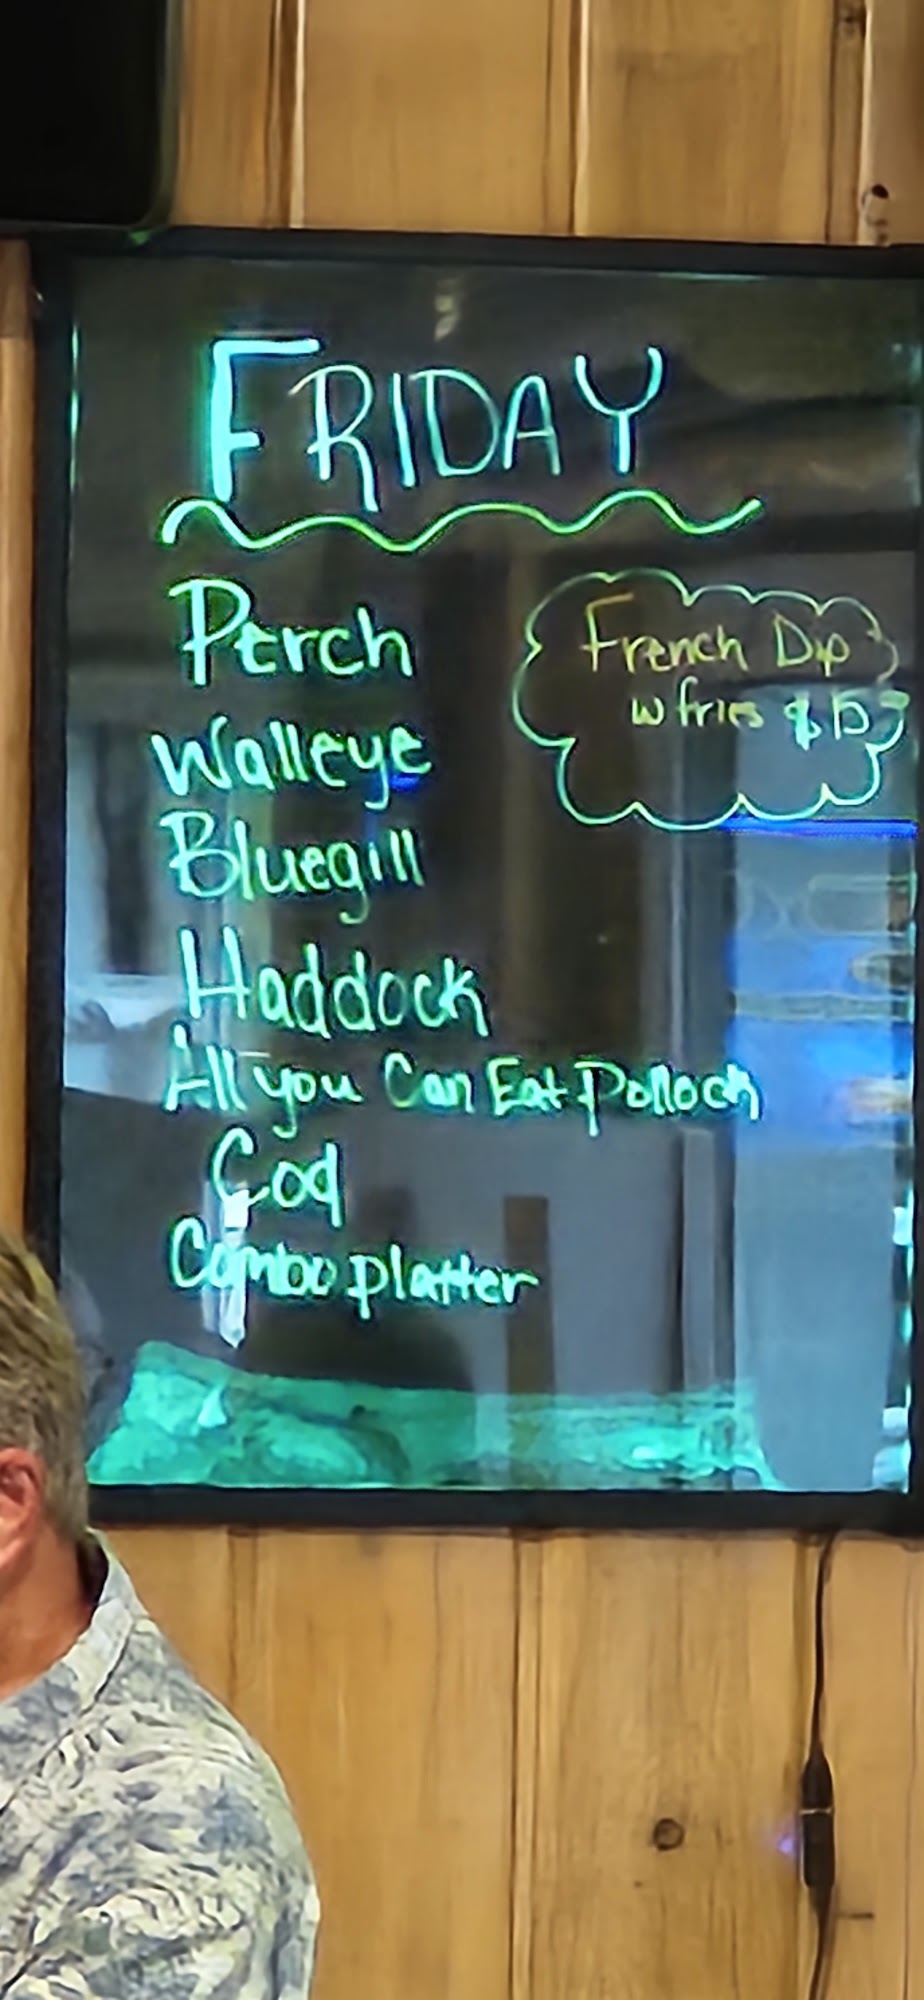 FRIDAY
Perch
French Dip
w fries $15
Walleye
Bluegill
Haddock
All you Can Eat Pollock
Cod
Combo platter